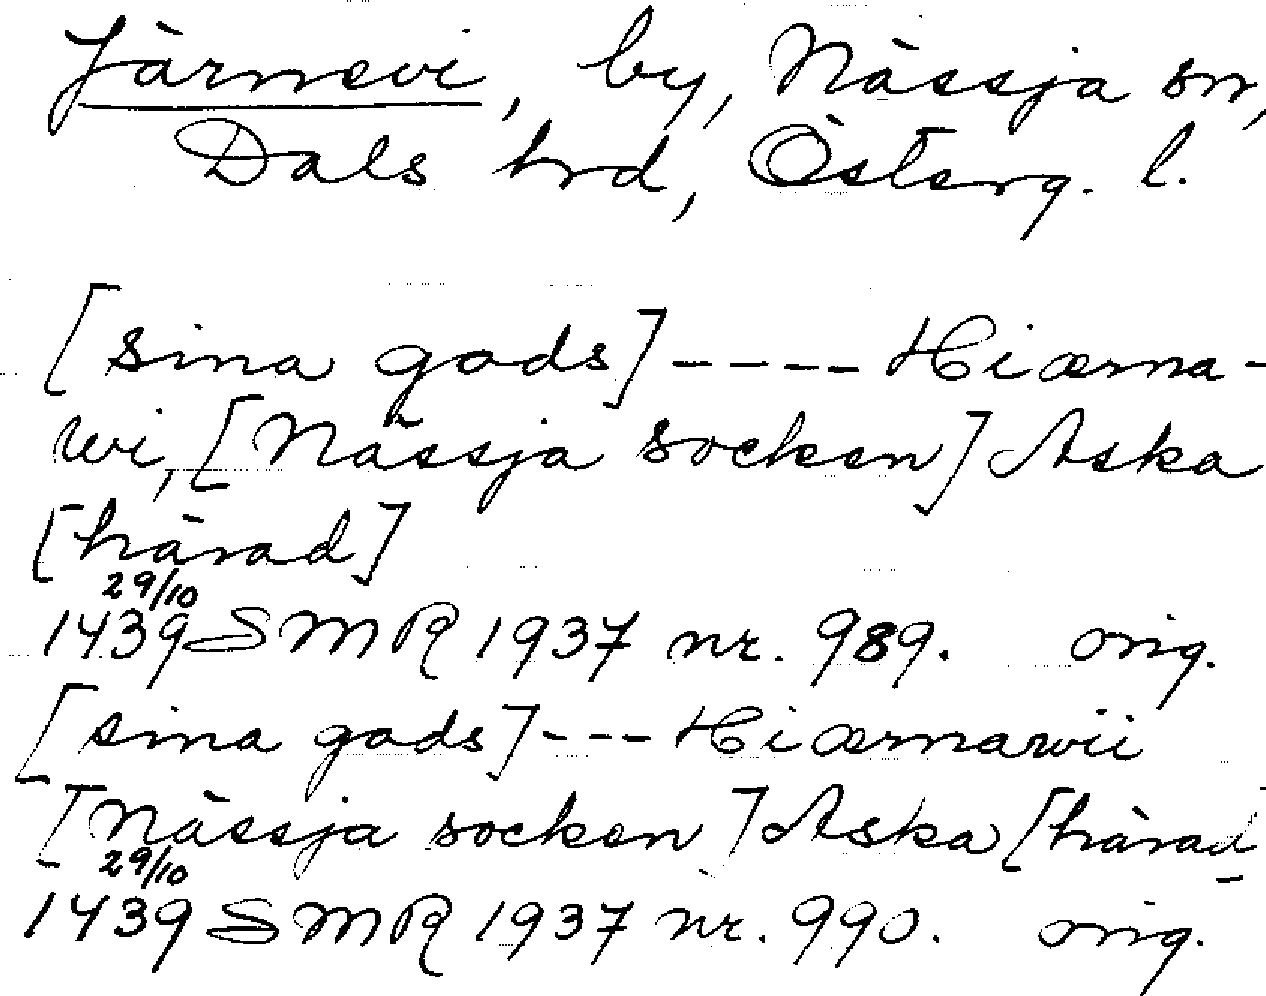 Järnevi, by, Nässja sn,
Dals hrd, Österg. l.
[sina gods] ---- Hiærna-
wi, [Nässja socken] Aska
[härad]
29/10
1439 SMR 1937 nr. 989. orig.
[sina gods] --- Hiærnawii
[Nässja socken] Aska [härad]
29/10
1439 SMR 1937 nr. 990. orig.